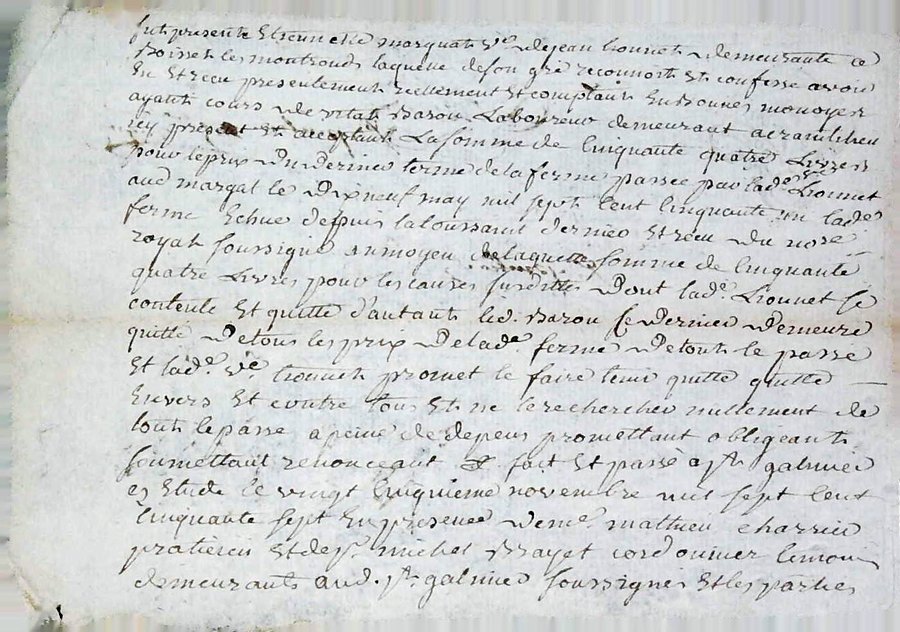 fut presente Estiennette marquat v^e de jean Lionnet demeurante a
Boisset les montronds laquelle de son gré reconnoit Et confesse avoir
Eu Et receu presentement reellement Et comptant En Bonnes monoyes
ayant cours de vital Barou Laboureur demeurant a
icy present Et acceptant La somme de Cinquante quatre Livres
pour le prix du dernier terme de la ferme passée par lad^e v^e Lionnet
aud margat le dixneuf may mil sept Cent Cinquante un lad^e
ferme Echue depuis la toussaint dernier Et receu du no^re
royal soussigné au moyen de laquelle somme de Cinquante
quatre Livres pour les causes susdittes dont lad^e. Lionnet se
contente Et quitte d'autant led. Barou Ce dernier demeure
quitte de tous les prix de lad^e ferme de tout le passé
Et lad^e. v^e Lionnet promet le faire tenir quitte quitte —
Envers Et contre tous Et ne le rechercher nullement de
tout le passé a peine de depens promettant obligeant
soumettant renonceant & fait Et passé a s^t. galmier
en Etude le vingt Cinquieme novembre mil sept Cent
Cinquante sept En presence de m^e. mathieu charrier
praticien Et de s^r. michel Brayet cordonnier temoins
demeurants aud. s^t. galmier soussignés Et les parties